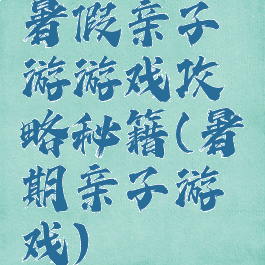 暑假亲子
游游戏攻
略秘籍(暑
期亲子游
戏)